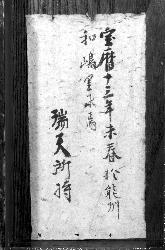 宝暦十三年未春於能州
和嶋写求焉
瑞天所持